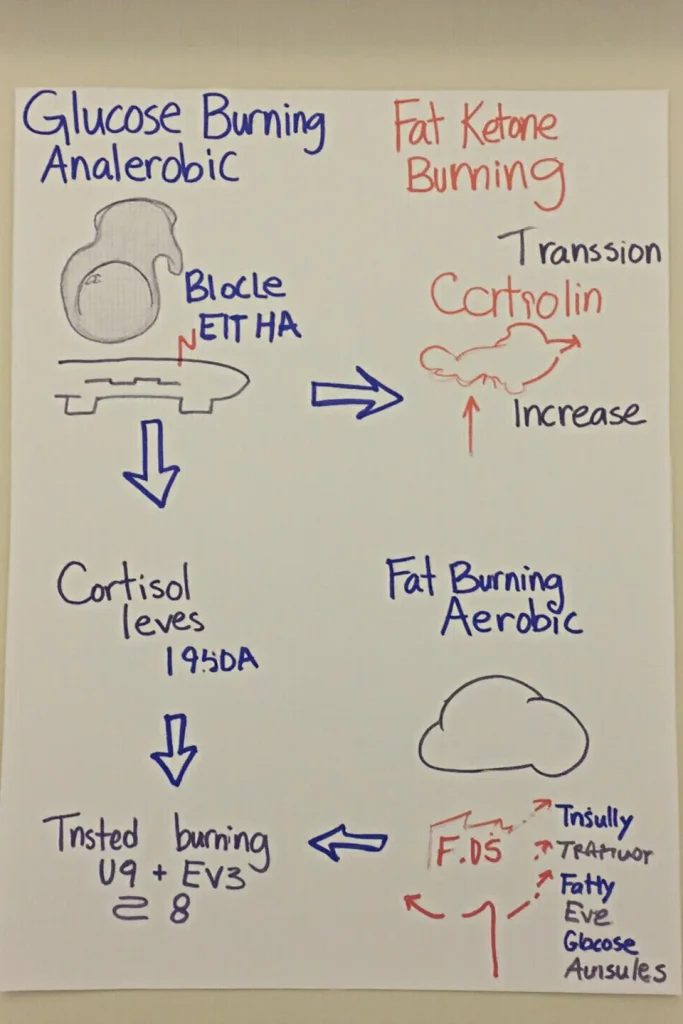 Glucose Burning
Analerobic
Fat Ketone
Burning
Transsion
Blocle
ETT HA
Increase
Cortisol
leves
Fat Burning
Aerobic
Tnsted burning
U9 + EV3
8
F.DS
Tnsully
Fatty
Eve
Glocose
Aunsules